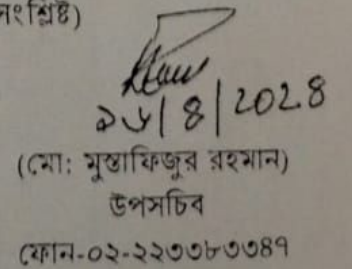 সংশ্লিষ্ট)
১৬/৪/২০২৪
(মো: মুস্তাফিজুর রহমান)
উপসচিব
ফোন-০২-২২৩৩৮৩৩৪৭